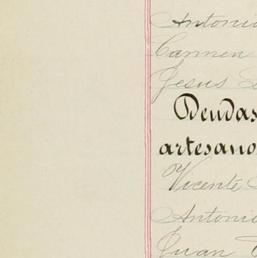 Antonio
Carmen
Jesus
Deudas
artesano
Vicente
Antonio
Juan